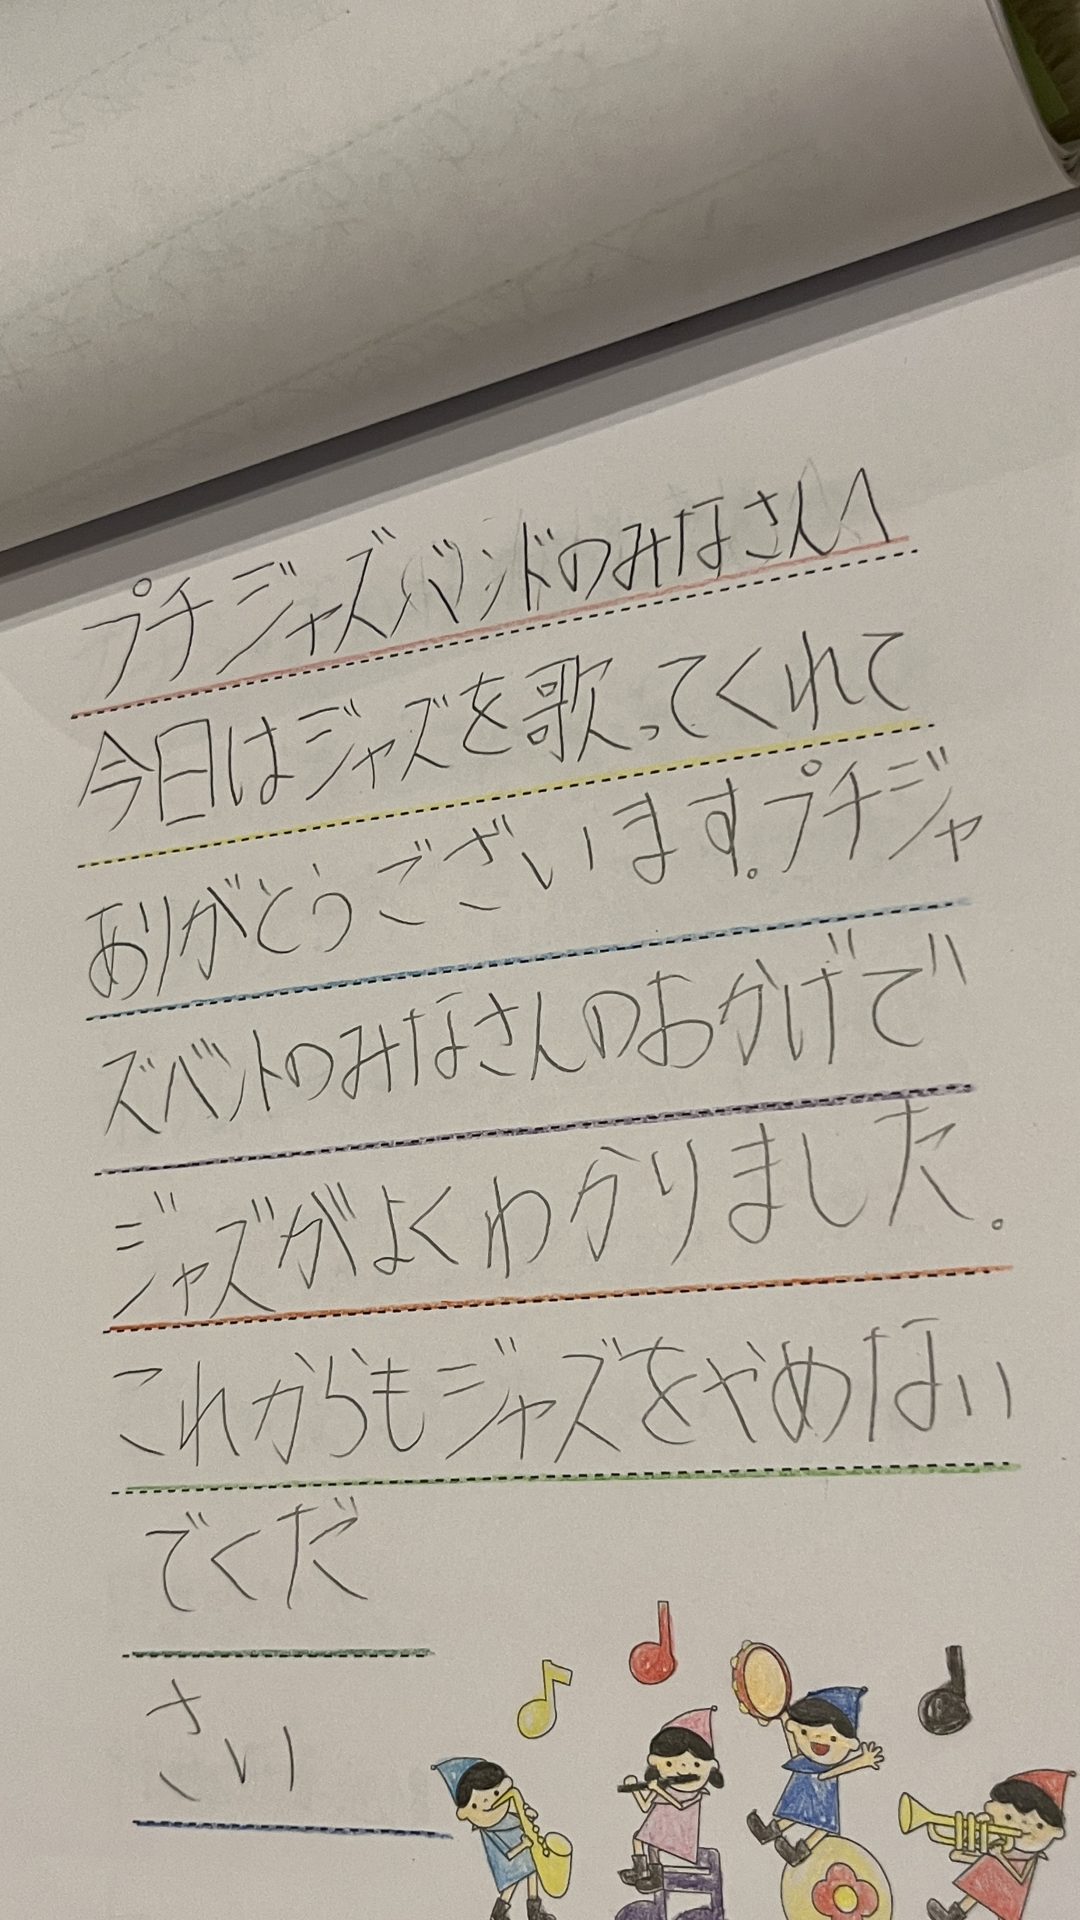 プチジャズバンドのみなさんへ
今日はジャズを歌ってくれて
ありがとうございます。プチジャ
ズベントのみなさんのおかげで
ジャズがよくわかりました。
これからもジャズをやめない
でくだ
さい